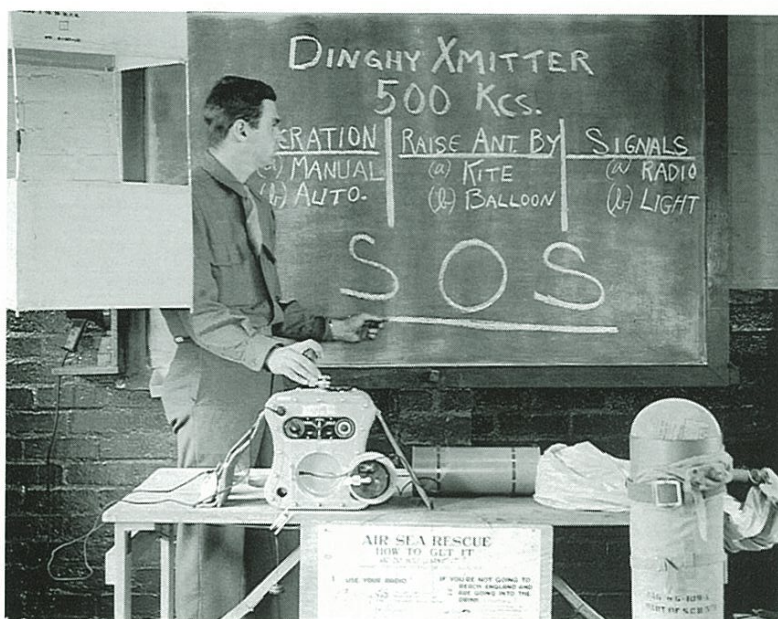 DINGHY XMITTER
500 KCS.
ERATION
(a) MANUAL
(b) AUTO.
RAISE ANT. BY
(a) KITE
(b) BALLOON
SIGNALS
(a) RADIO
(b) LIGHT
SOS
AIR SEA RESCUE
HOW TO GET IT
1 USE YOUR RADIO
IF YOU'RE NOT GOING TO
REACH ENGLAND AND
ARE GOING INTO THE
DRINK